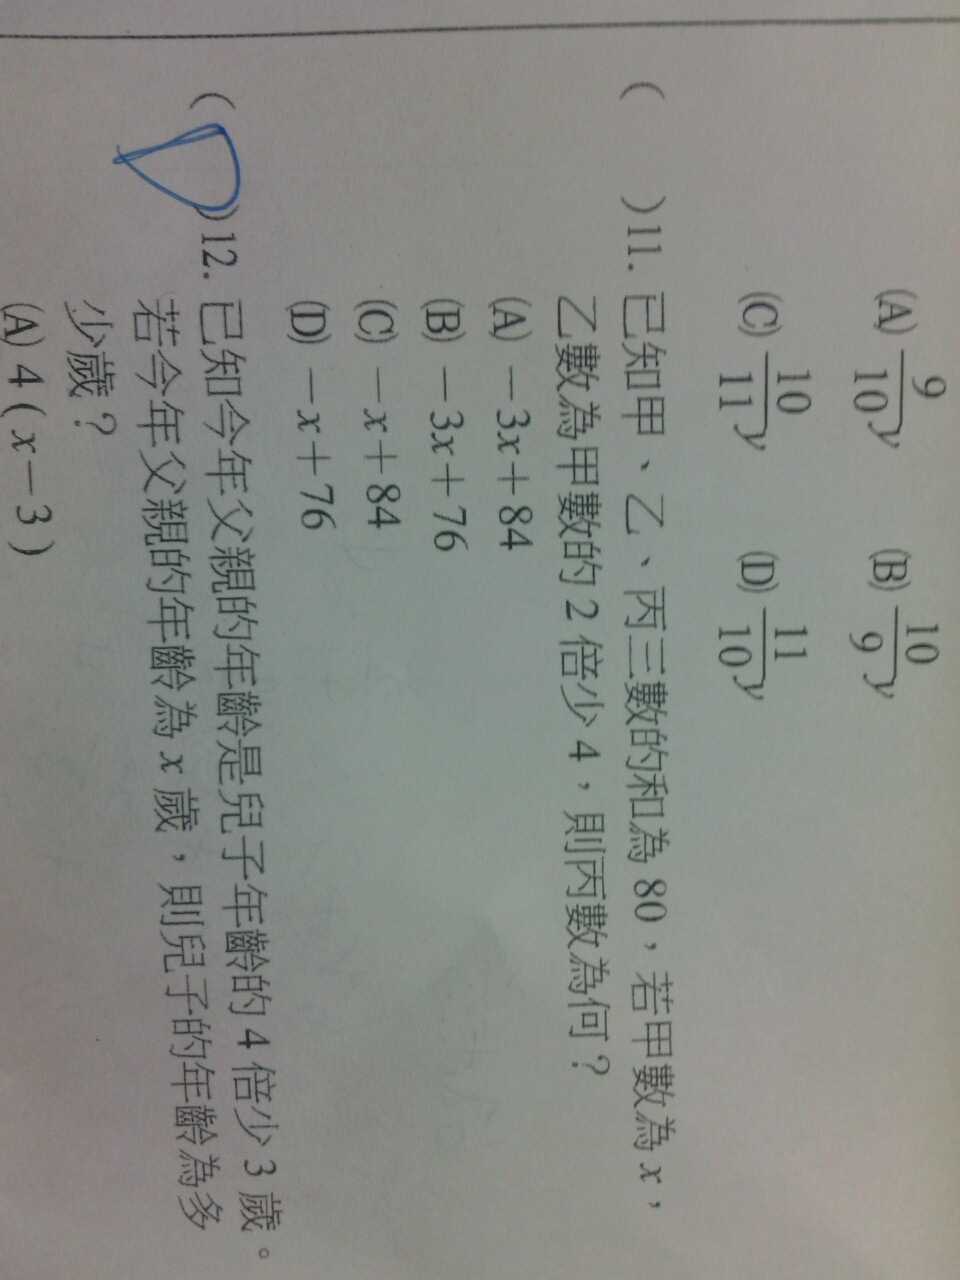 (A) 9/10 y (B) 10/9 y
(C) 10/11 y (D) 11/10 y
( )11. 已知甲、乙、丙三數的和為 80，若甲數為 x，
乙數為甲數的 2 倍少 4，則丙數為何？
(A) －3x＋84
(B) －3x＋76
(C) －x＋84
(D) －x＋76
( D )12. 已知今年父親的年齡是兒子年齡的 4 倍少 3 歲。
若今年父親的年齡為 x 歲，則兒子的年齡為多
少歲？
(A) 4 ( x－3 )